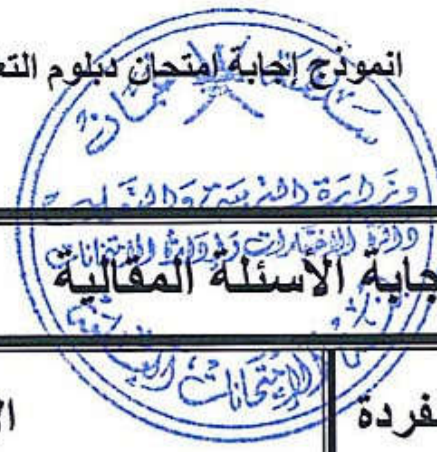 انموذج إجابة امتحان دبلوم التع
سلطنة عمان
وزارة التربية والتعليم
دائرة الاختبارات وإدارة الامتحانات
جابة الأسئلة المقالية
فردة
ال